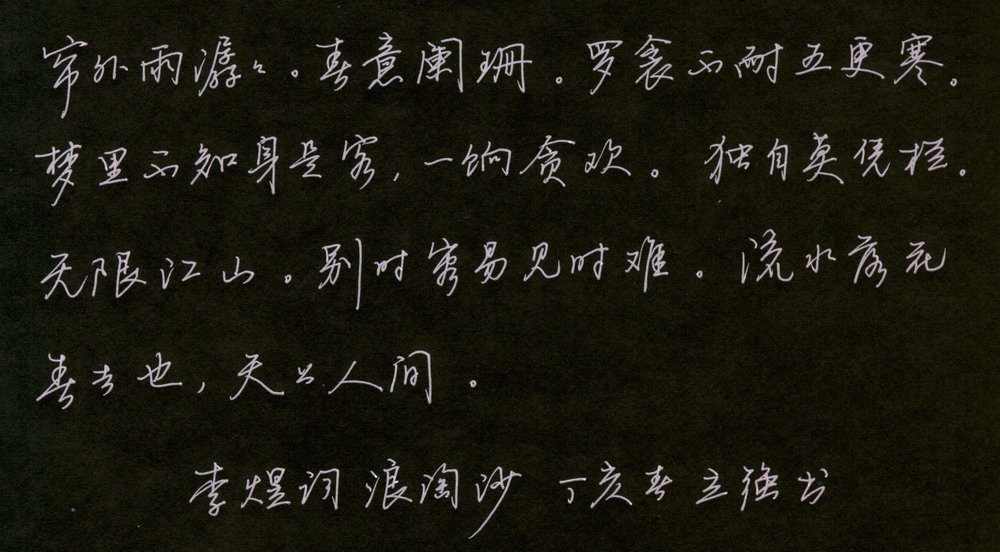 帘外雨潺々。春意阑珊。罗衾不耐五更寒。
梦里不知身是客,一饷贪欢。独自莫凭栏。
无限江山。别时容易见时难。流水落花
春去也,天上人间。
李煜词浪淘沙 丁亥春立强书